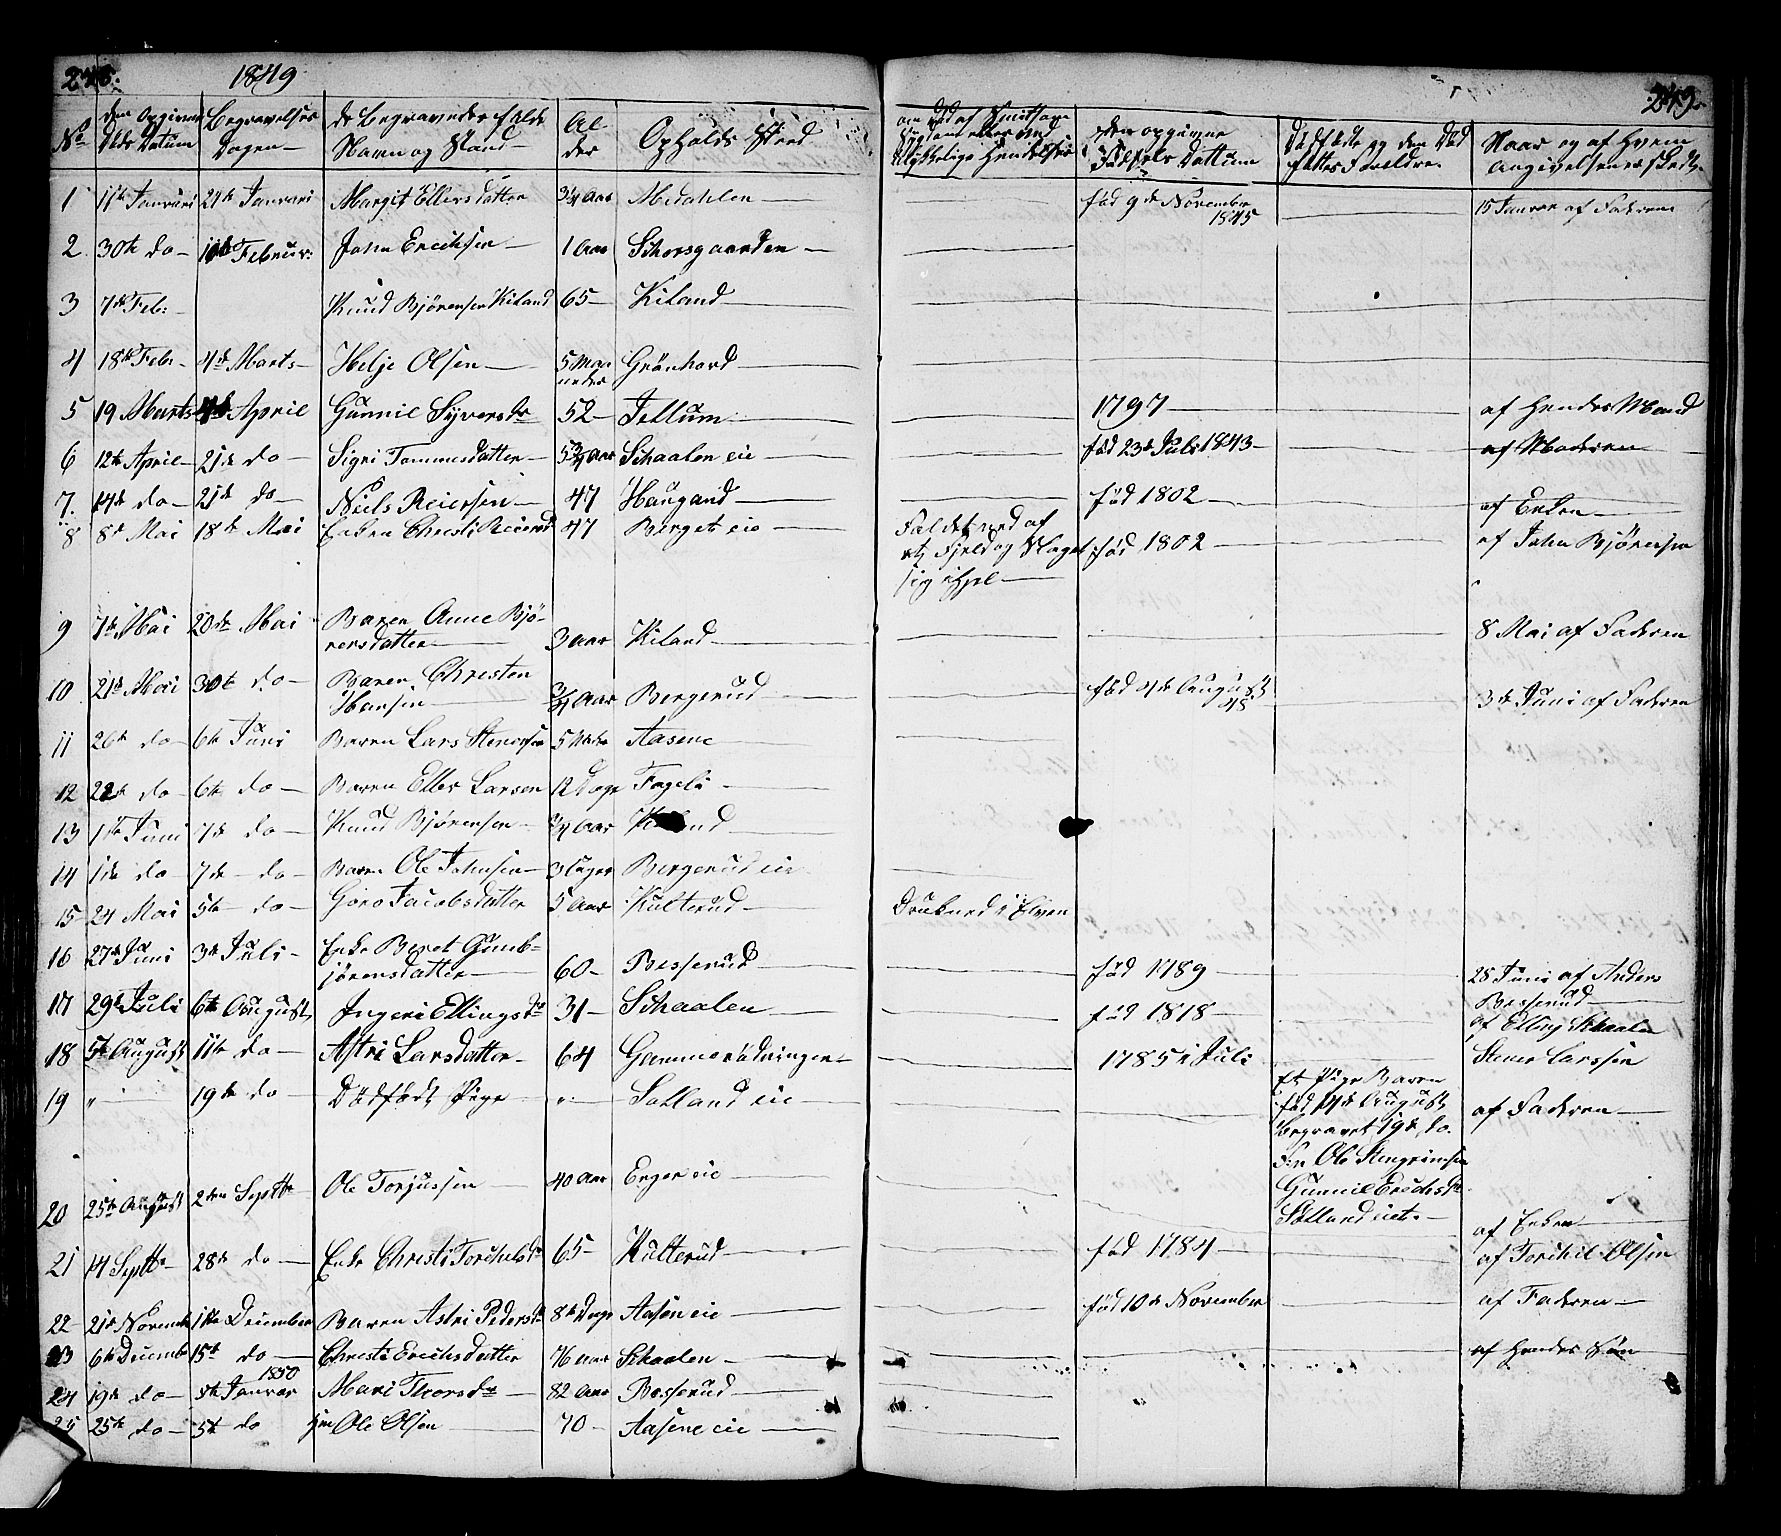 248. 1849 249.
No | den opgivne Døds Datum | Begravelses Dagen | de Begravedes fulde Navn og Stand | Alder | Opholds Sted | om død af Smitsom Sygdom eller ved Ulykkelige Hendelser | den opgivne Fødsels Dattum | Dødfødte og den Død fødtes Foreldre | Naar og af Hvem angivelsen er skedt
1 | 11te Januari | 21de Januari | Margit Ellersdatter | 3¼ Aar | Medahlen | — | fød 9de November 1845 | — | 15 Januar af Faderen
2 | 30te do | Februar: | John Erichsen | 1 Aar | Schorsgaarden
3 | 7de Feb: | | Knud Bjørensen Kiland | 65 | Kiland
4 | 18de Febr | 4de Marts | Helje Olsen | 5 Maaneder | Grönhord
5 | 19 Marts | April | Gunnil Syversdr | 52 | Jellum | — | 1797 | — | af Hendes Mand
6 | 12te April | 21de do | Sigri Tommesdatter | 5¾ Aar | Schaalen eie | — | fød 23de Juli 1843 | — | af Moderen
7. | 14de do | 21de do | Niels Reiersen | 47 | Haugand | — | fød 1802 | — | af Enken
8 | 8de Mai | 18de Mai | Enken Christi Reiersd | 47 | Berget eie | Faldet ned af et Fjeld og Slaget sig ihjel | fød 1802 | — | af John Bjørensen
9 | 7de Mai | 20de Mai | Baren Anne Bjørensdatter | 3 Aar | Kiland | — | — | — | 8 Mai af Faderen
10 | 21de Mai | 30te do | Baren Christen Hansen | ¾ Aar | Bergerud | — | fød 4de August 48 | | 3de Juni af Faderen
11 | 26te do | 6te Juni | Baren Lars Stenersen | 5 | Aasene
12 | 22de do | 6te do | Baren Eller Larsen | 12 Dage | Fageli
13 | 1ste Juni | 7de do | Knud Bjørensen | ¾ Aar | Kiland
14 | 1de do | 7de do | Baren Ole Johnsen | 3 Uger | Bergerud eie
15 | 24 Mai | 5te do | Goro Jacobsdatter | 5 Aar | Kulterud | Drukned i Elven
16 | 27de Juni | 3de Juli | Enke Beret Gundbjörensdatter | 60 | Besserud | — | fød 1789 | — | 28 Juni af Anders Besserud
17 | 29de Juli | 6te August | Ingeri Ellingsdr | 31 | Schaalen | — | fød 1818 | — | af Elling Schaalen
18 | 5te August | 11te do | Astri Larsdatter | 64 | Gammerüdningen | — | 1785 i Juli | — | Stener Larssen
19 | " | 19de do | Dödfödt Pige | " | Solland eie | — | — | Et Pige Baren fød 14de August begravet 19de do. Far Ole Stengrimsen Gunnil Erichsdr Solland eiet. | af Faderen
20 | 25te August | 2den Septb | Ole Torjussen | 40 Aar | Enger eie | — | — | | af Enken
21 | 14 Septb | 28de do | Enke Christi Torchelsdr | 65 | Kulterud | — | fød 1784 | — | af Torchil Olsen
22 | 21de Novemb | 1ste December | Baren Astri Pedersdr | 8te Dage | Aasen eie | — | fød 10de November | — | af Faderen
23 | 6te Decembe | 15de do | Christi Erichsdatter | 76 Aar | Schaalen | — | — | — | af Hendes Sön
24 | 19de do | 5te Januar 1850 | Mari Thorsdr | 82 Aar | Besserud
25 | 25te do | 5te do | Ole Olsen | 70 | Aasene eie